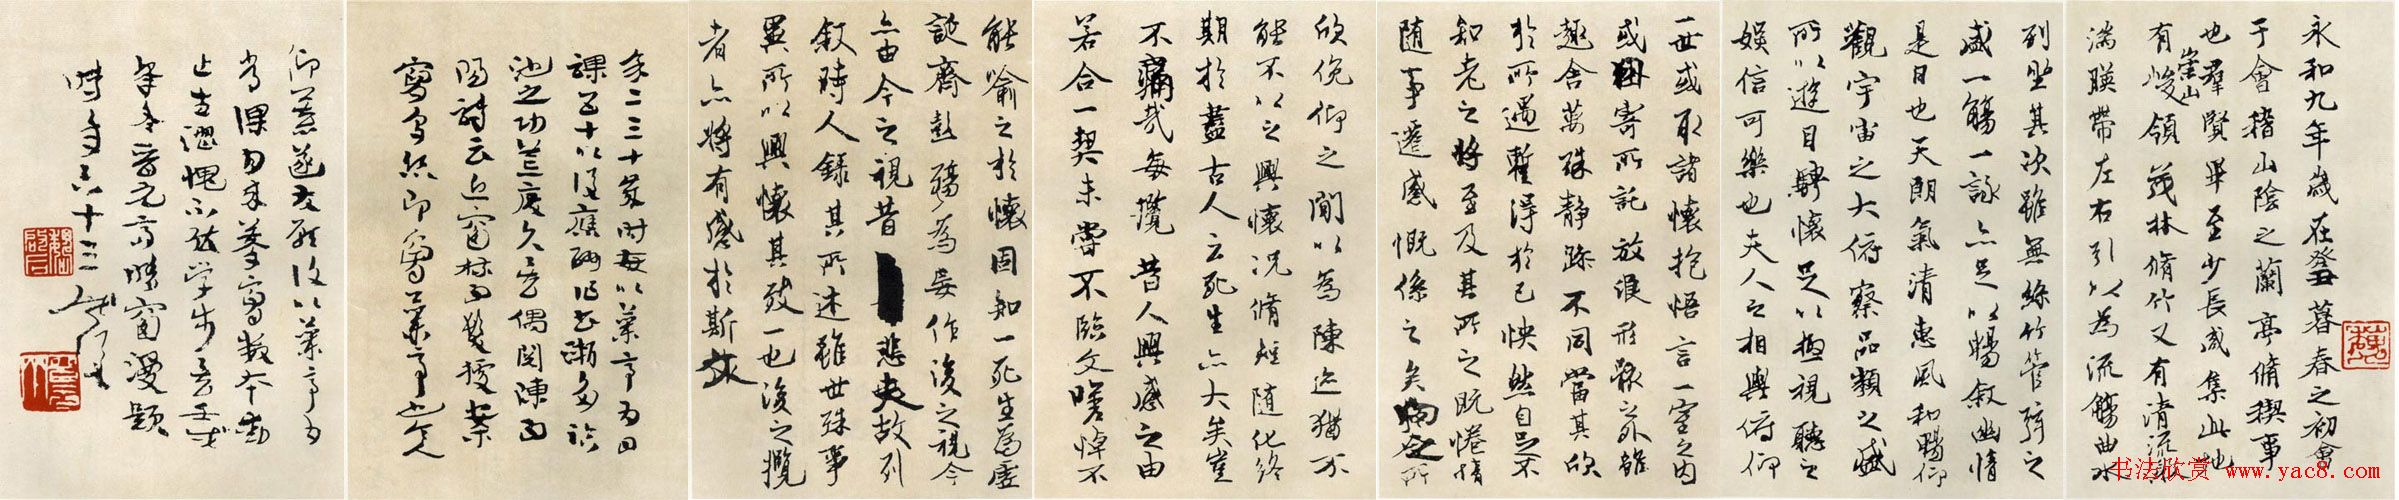 永和九年歲在癸丑暮春之初會
于會稽山陰之蘭亭脩稧事
也羣賢畢至少長咸集此地
有崇山峻領茂林脩竹又有清流激
湍暎帶左右引以為流觴曲水
列坐其次雖無絲竹管弦之
盛一觴一詠亦足以暢敘幽情
是日也天朗氣清惠風和暢仰
觀宇宙之大俯察品類之盛
所以遊目騁懷足以極視聽之
娛信可樂也夫人之相與俯仰
一世或取諸懷抱悟言一室之內
或因寄所託放浪形骸之外雖
趣舍萬殊靜躁不同當其欣
於所遇暫得於己怏然自足不
知老之將至及其所之既惓情
隨事遷感慨係之矣向之所
欣俛仰之閒以為陳迹猶不
能不以之興懷況脩短隨化終
期於盡古人云死生亦大矣豈
不痛哉每攬昔人興感之由
若合一契未嘗不臨文嗟悼不
能喻之於懷固知一死生為虛
誕齊彭殤為妄作後之視今
亦由今之視昔悲夫故列
敘時人錄其所述雖世殊事
異所以興懷其致一也後之攬
者亦將有感於斯文
余二三十歲時每以蘭亭為日
課五十以後應酬作書漸多臨
池之功荒廢久矣偶閱陳
簡詩云
寫烏絲即寫蘭亭也
仰慕
止
年冬
時年六十三
书法欣赏 www.yac8.com